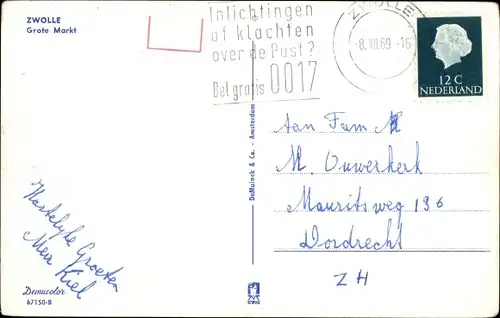 ZWOLLE
Grote Markt
Inlichtingen
of klachten
over de Post?
Bel gratis 0017
ZWOLLE
-8.VII.69 -16
12 C
NEDERLAND
Aan Fam
M. Ouwerkerk
Mauritsweg 196
Dordrecht
ZH
Hartelijke Groeten
Mevr Kiel
DeMuinck & Co. - Amsterdam
Demucolor
67150-B